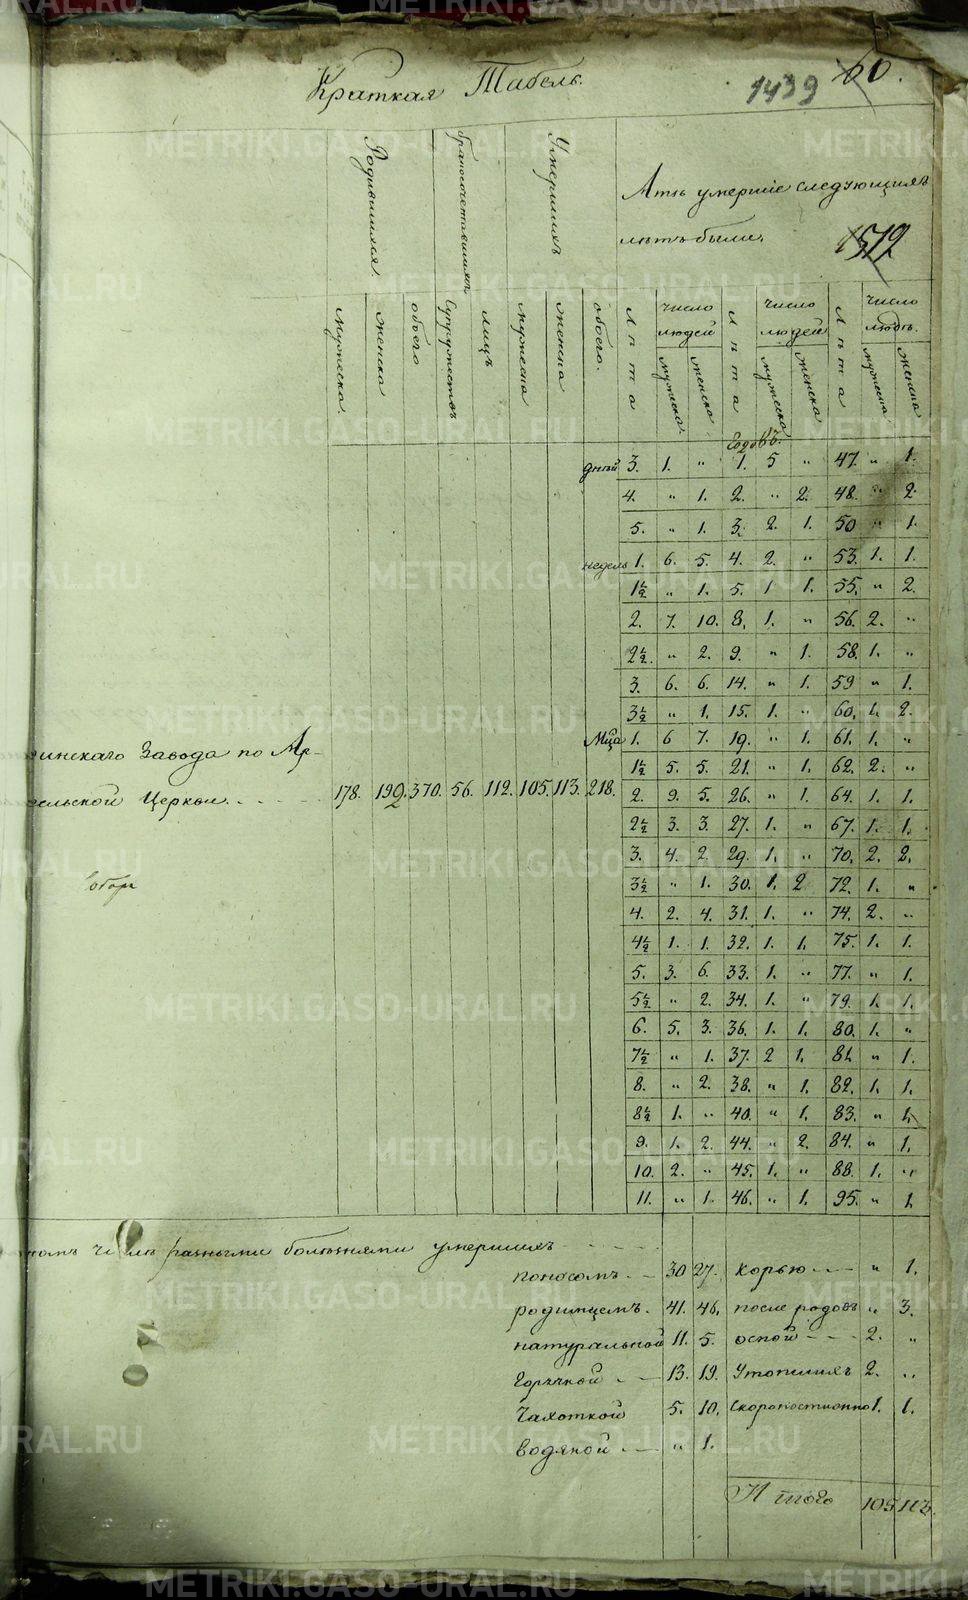 Краткая Табель.
1439
60.
Родившихся.
бракосочетавшихся
Умершихъ
А тѣ умершіе следующихъ
лѣтъ были.
1512
мужеска.
женска
обоего
Супружествъ
лицъ
мужеска
женска
обоего.
Лѣта
число людей
мужеска.
женска
Лѣта
число людей
мужеска
женска
Лѣта
число людей.
мужеска
женска
Годовъ.
дней 3. 1. " 1. 5 " 47. " 1.
4. " 1. 2. " 2. 48. " 2.
5. " 1. 3. 2. 1. 50 " 1.
недель 1. 6. 5. 4. 2. " 53. 1. 1.
1½ " 1. 5. 1 1. 55. " 2.
2. 7. 10. 8. 1. " 56. 2. "
2½. " 2. 9. " 1. 58. 1. "
3. 6. 6. 14. " 1. 59 " 1.
3½ " 1. 15. 1. " 60. 1. 2.
Мца 1. 6 7. 19. " 1. 61. 1. "
1½ 5. 5. 21. " 1. 62. 2. "
2. 9. 5. 26. " 1. 64. 1. 1.
2½ 3. 3. 27. 1. " 67. 1. 1.
3. 4. 2. 29. 1. " 70. 2. 2.
3½ " 1. 30. 1. 2 72. 1. "
4. 2. 4. 31. 1. " 74. 2. "
4½ 1. 1. 32. 1. 1. 75. 1. 1.
5. 3. 6. 33. 1. " 77. " 1.
5½ " 2. 34. 1. " 79. 1. 1.
6. 5. 3. 36. 1. 1. 80. 1. "
7½ " 1. 37. 2 1. 81. " 1.
8. " 2. 38. " 1. 82. 1. 1.
8½ 1. " 40. " 1. 83. " 1.
9. 1. 2. 44. " 2. 84. " 1.
10. 2. " 45. 1. " 88. 1. "
11. " 1. 46. " 1. 95. " 1.
инскаго Завода по Ар-
ельской Церкви. 178. 192. 370. 56. 112. 105. 113. 218.
томъ числѣ разными болѣзнями умершихъ
поносомъ. 30 27. корью " 1.
родимцемъ. 41. 46. после родовъ " 3.
натуральной 11. 5. оспой 2. "
Горячкой 13. 19. Утопшихъ 2. "
Чахоткой 5. 10. Скоропостижно 1. 1.
водяной " 1.
Итого 105 113.
METRIKI.GASO-URAL.RU